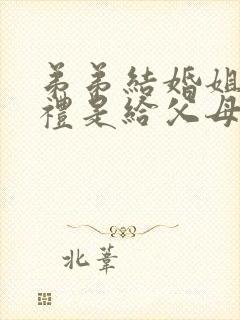 弟弟結婚姐
禮是給父母
北葦